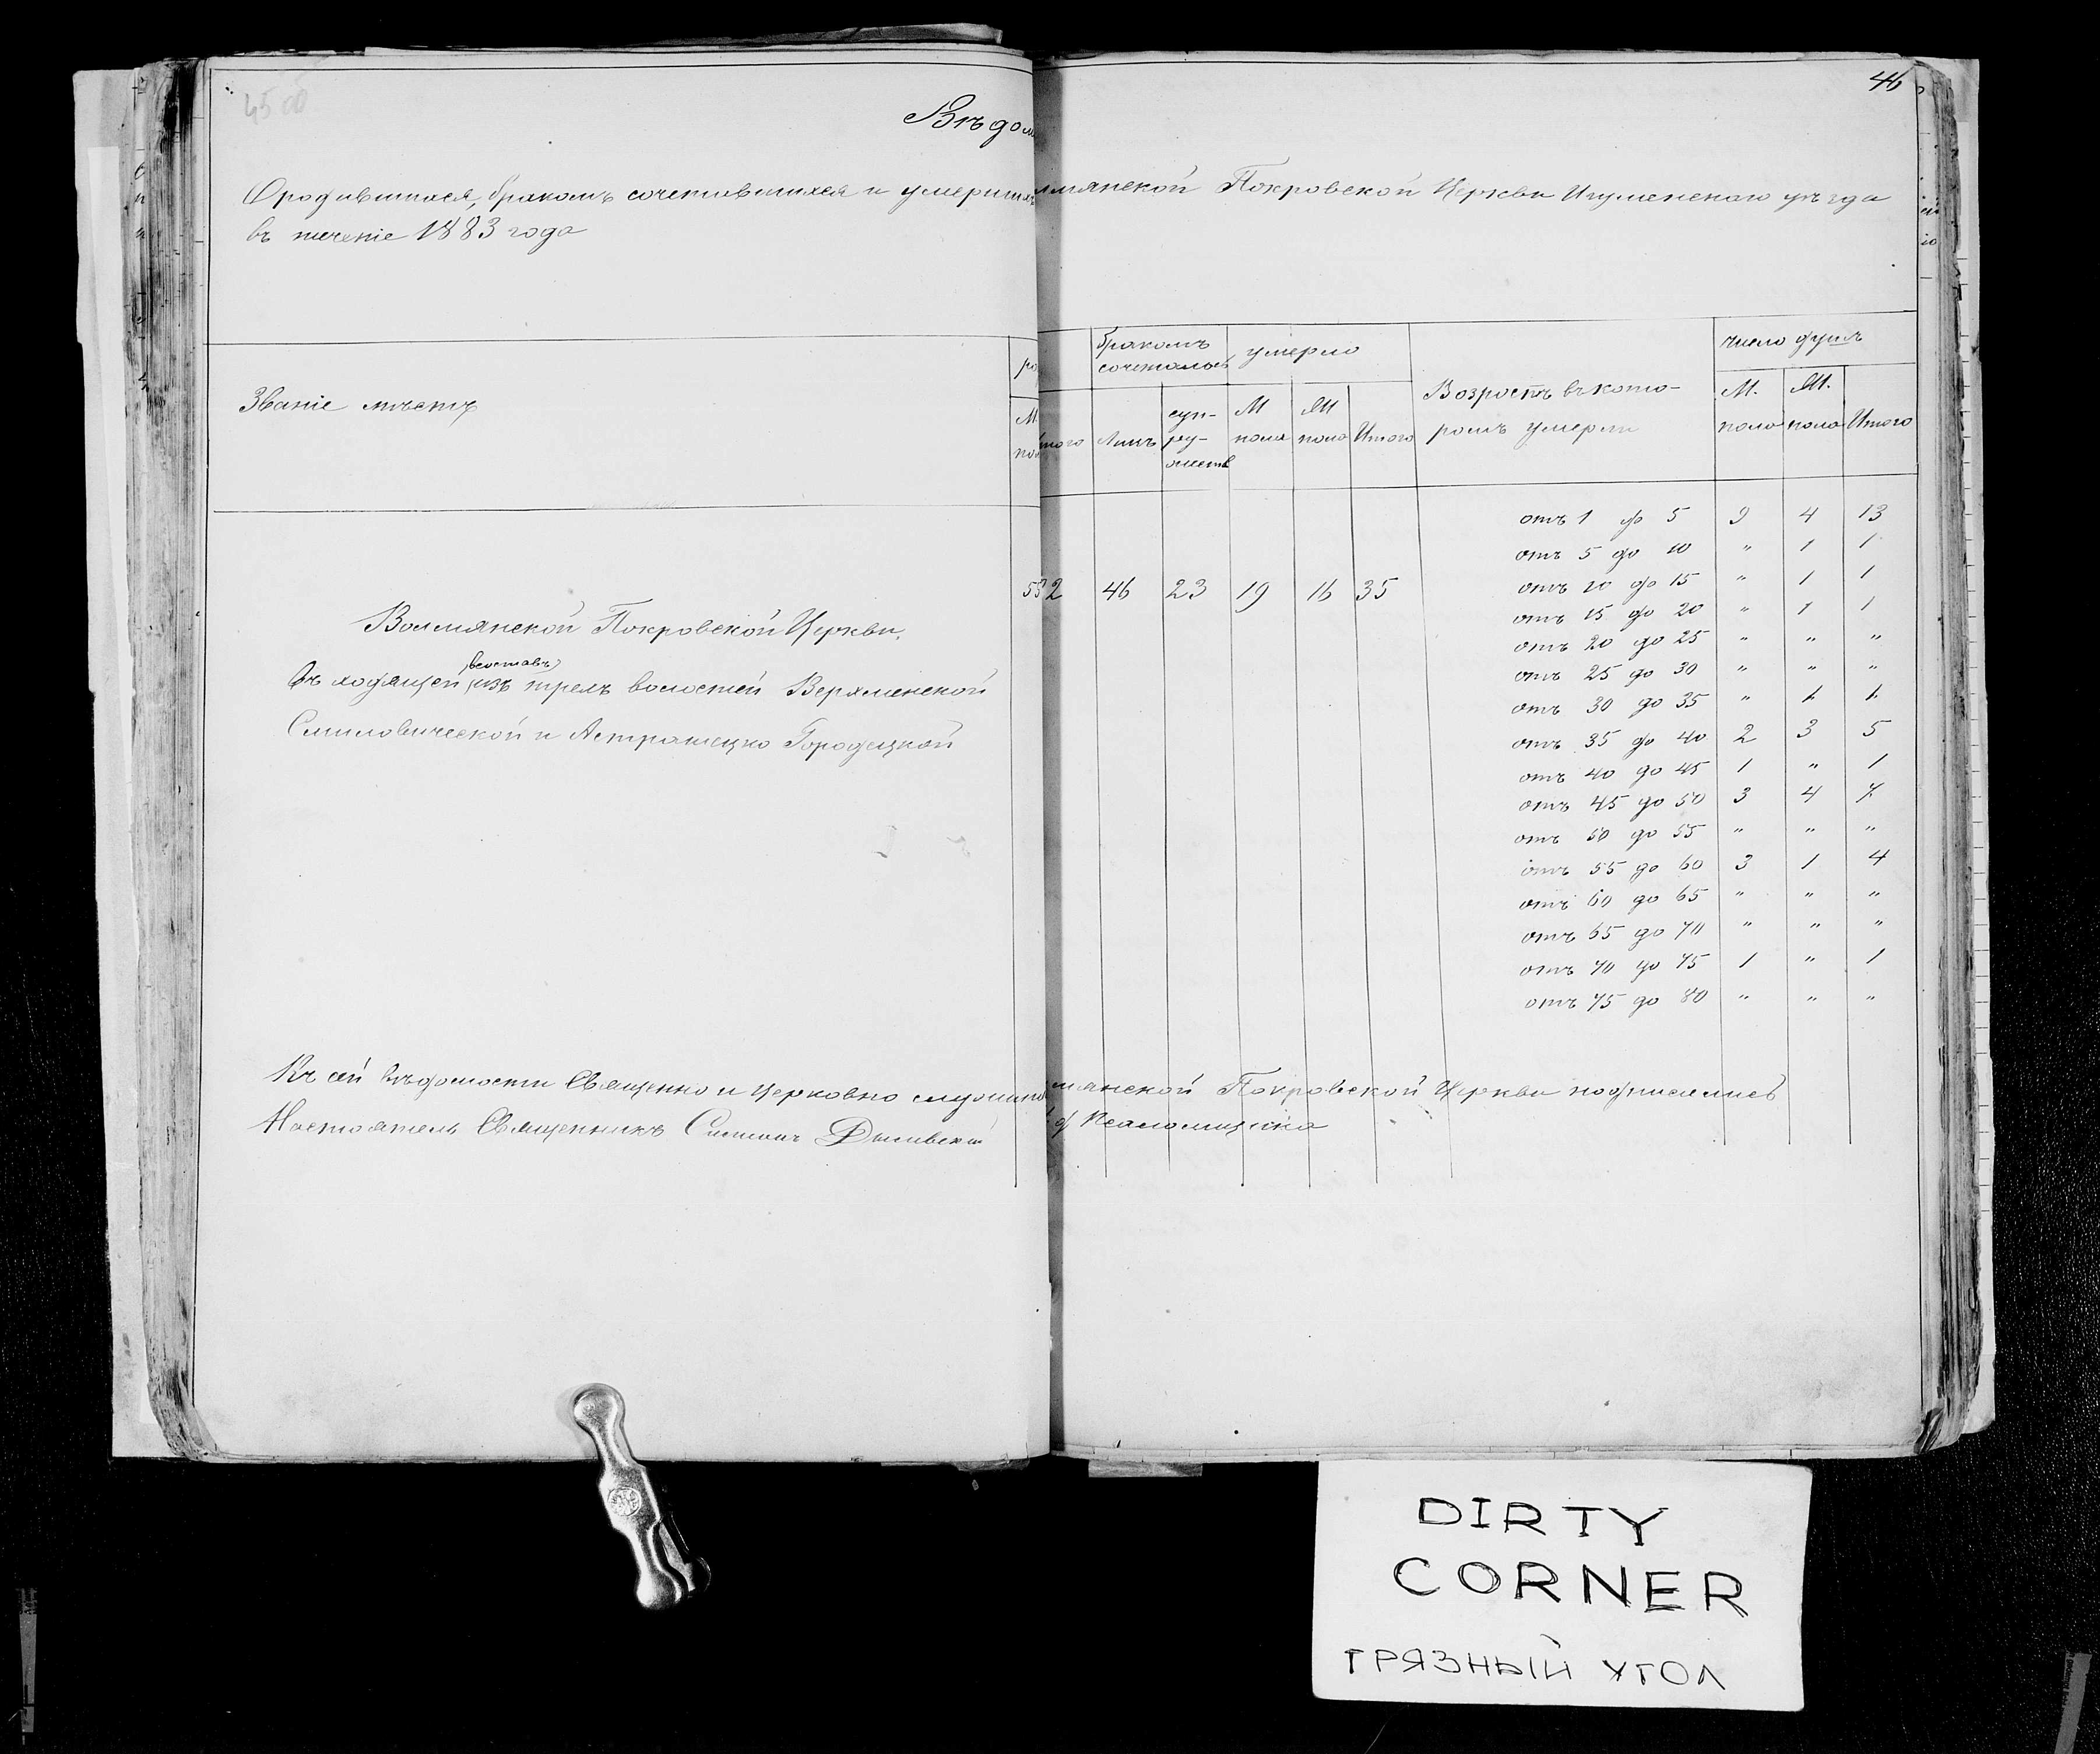 46
45 об
Вѣдом
О родившихся, бракомъ сочетавшихся и умершихъ
въ теченіе 1883 года
лмянской Покровской Церкви Игуменскаго уѣзда
Званіе мѣстъ
М.
Бракомъ сочеталось
Лицъ
суп-
ру-
жествъ
умерло
М пола
Ж пола
Итого
Возрастъ въ кото-
ромъ умерли
число душъ
М. пола
Ж. пола
Итого
Волмянской Покровской Церкви,
въ составъ
въ ходящей изъ трехъ волостей Верхменской
Смиловической и Астрошицко Городецкой
55 2 46 23 19 16 35
отъ 1 до 5 9 4 13
отъ 5 до 10 " 1 1
отъ 10 до 15 " 1 1
отъ 15 до 20 " 1 1
отъ 20 до 25 " " "
отъ 25 до 30 " " "
отъ 30 до 35 " 1 1
отъ 35 до 40 2 3 5
отъ 40 до 45 1 " 1
отъ 45 до 50 3 4 7
отъ 50 до 55 " " "
отъ 55 до 60 3 1 4
отъ 60 до 65 " " "
отъ 65 до 70 " " "
отъ 70 до 75 1 " 1
отъ 75 до 80 " " "
Къ сей вѣдомости Священно и церковно служит
мянской Покровской Церкви подписались
Настоятель Священникъ
д Псаломщика
DIRTY
CORNER
ГРЯЗНЫЙ УГОЛ